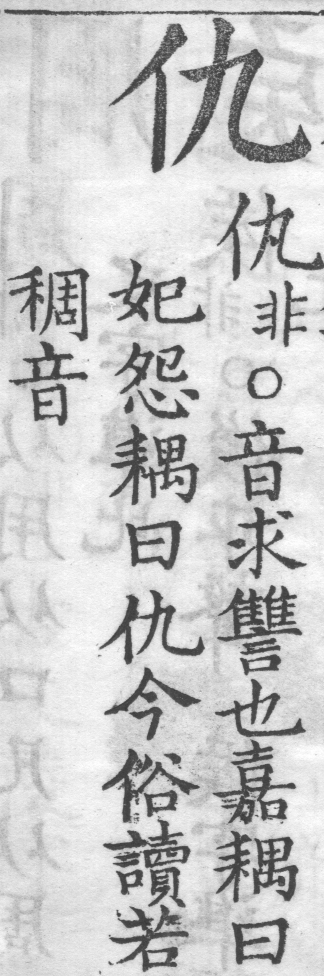 仇
非○音求讐也嘉耦曰
妃怨耦曰仇今俗讀若
稠音